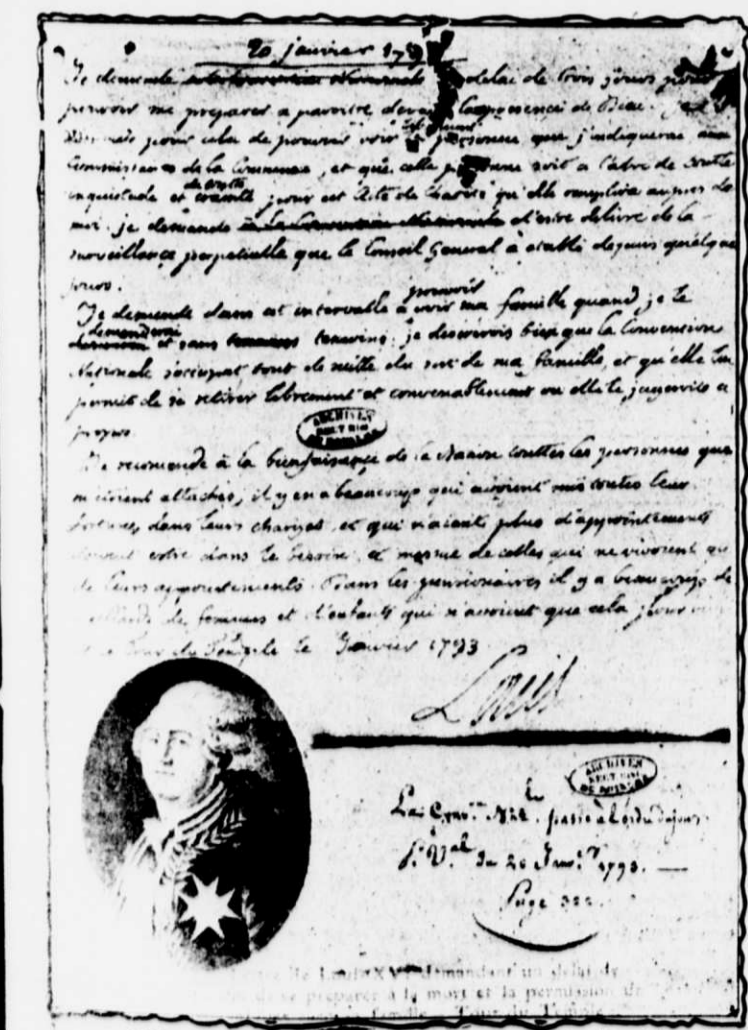 20 janvier 179
Je demande delai de trois jours pour
pouvoir me preparer a paroitre devant la presence de Dieu. je
pour cela de pouvoir voir personne que j'indiquerai aux
Commissaires de la Commune, et que cette personne soit a l'abri de toutte
inquietude et de toutte crainte pour cet Acte de Charité qu'elle remplira aupres de
moi. je demande d'estre delivré de la
surveillance perpetuelle que le Conseil General a établi depuis quelque
jours.
Je demende dans cet intervalle a pouvoir voir ma famille quand je le
demanderai et sans temoins; je desirerois bien que la Convention
Nationale s'occupat tout de suitte du sort de ma famille, et qu'elle lui
permit de se retirer librement et convenablement ou elle le jugeroit a
propos.
ARCHIVES
SECTION
Je recomande à la bienfaisance de la Nation touttes les personnes qui
m'etoient attachés, il y en a beaucoup qui avoient mis toutes leur
fortunes dans leurs charges, et qui n'aiant plus d'appointements
doivent estre dans le besoin, et mesme de celles qui ne vivoient que
de leurs appointements. Dans les pensionaires il y a beaucoup de
vieillards de femmes et d'enfants qui n'avoient que cela pour vivre
Tour du Temple le Janvier 1793
Louis
ARCHIVES
SECTION
La Conv.on N.le passe à l'ordre du jour
P. V.al du 20 Janv.er 1793.
Page
de Louis XVI demandant un délai de
de se préparer à la mort et la permission de
famille Tour du Temple